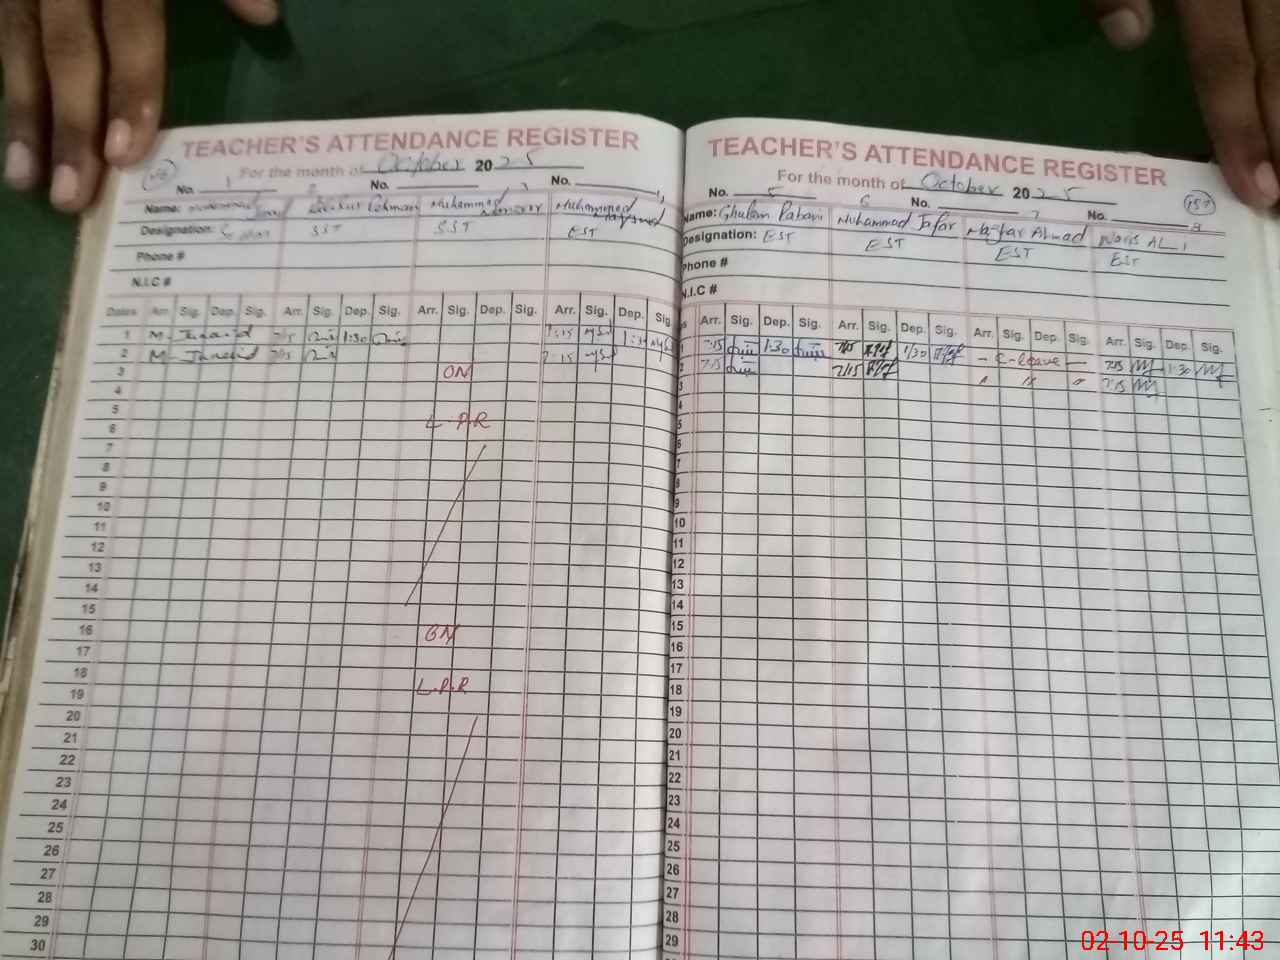 TEACHER'S ATTENDANCE REGISTER
For the month of October 2025
No. 1 2 No. 3 No. 4
Name: Muhammad Rehman Muhammad Muhammad
Designation: SST SST EST
Phone #
N.I.C #
Dates Arr. Sig. Dep. Sig. Arr. Sig. Dep. Sig. Arr. Sig. Dep. Sig. Arr. Sig. Dep. Sig.
1 M. Junaid 7/15 1:30 7:15
2 M. Junaid 7/15 7:15
3 ON
4
5
6 L.P.R
7
8
9
10
11
12
13
14
15
16 ON
17
18
19 L.P.R
20
21
22
23
24
25
26
27
28
29
30
TEACHER'S ATTENDANCE REGISTER
For the month of October 2025 157
No. 5 6 No. 7 No. 8
Name: Ghulam Rabani Muhammad Jafar Mazhar Ahmad Waris ALi
Designation: EST EST EST EST
Phone #
N.I.C #
Arr. Sig. Dep. Sig. Arr. Sig. Dep. Sig. Arr. Sig. Dep. Sig. Arr. Sig. Dep. Sig.
1 7:15 1:30 7/15 1/30 - C-leave - 7:15 1:30
2 7:15 7/15 " " " 7:15
3
4
5
6
7
8
9
10
11
12
13
14
15
16
17
18
19
20
21
22
23
24
25
26
27
28
29
02-10-25 11:43